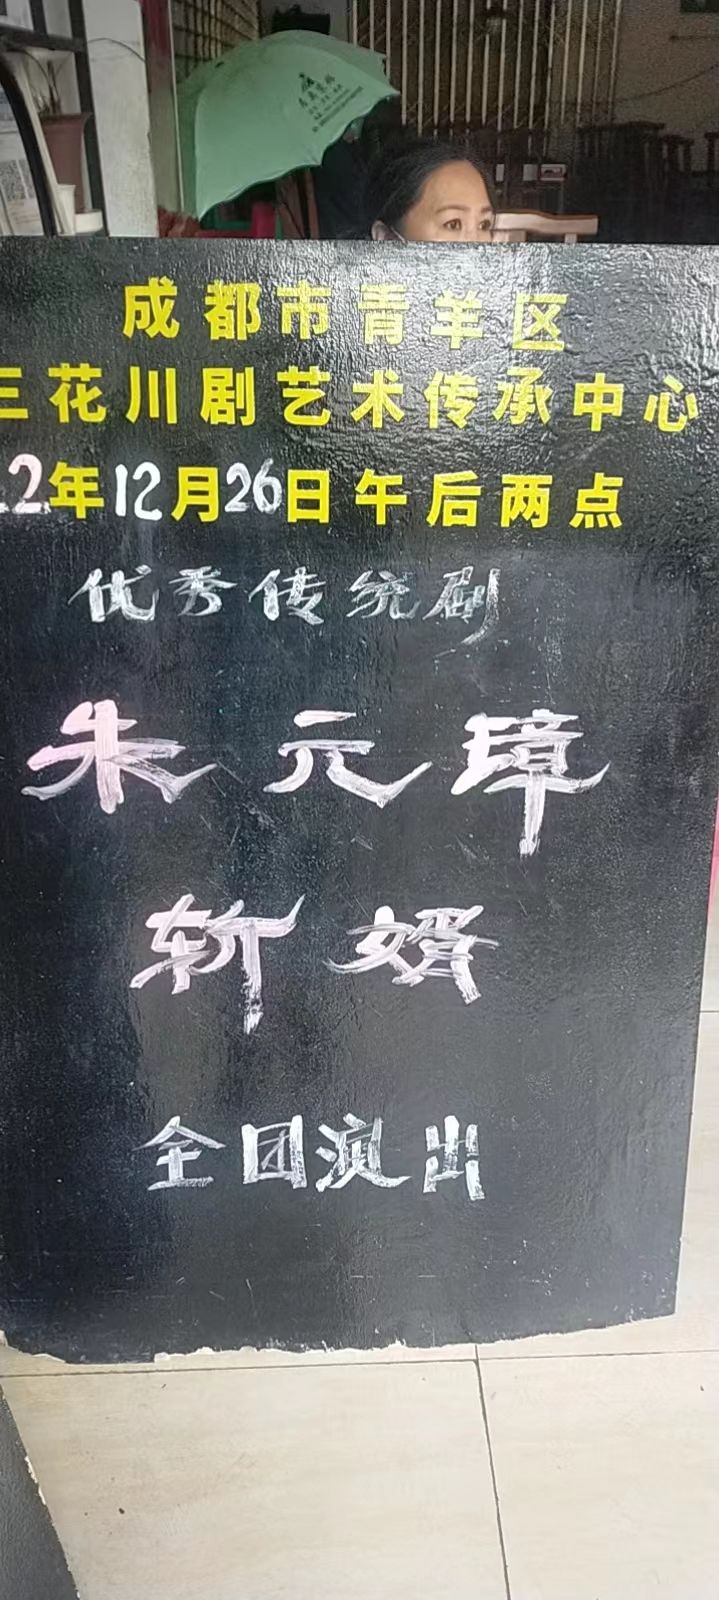 成都市青羊区
三花川剧艺术传承中心
22年12月26日午后两点
优秀传统剧
朱元璋
斩婿
全团演出